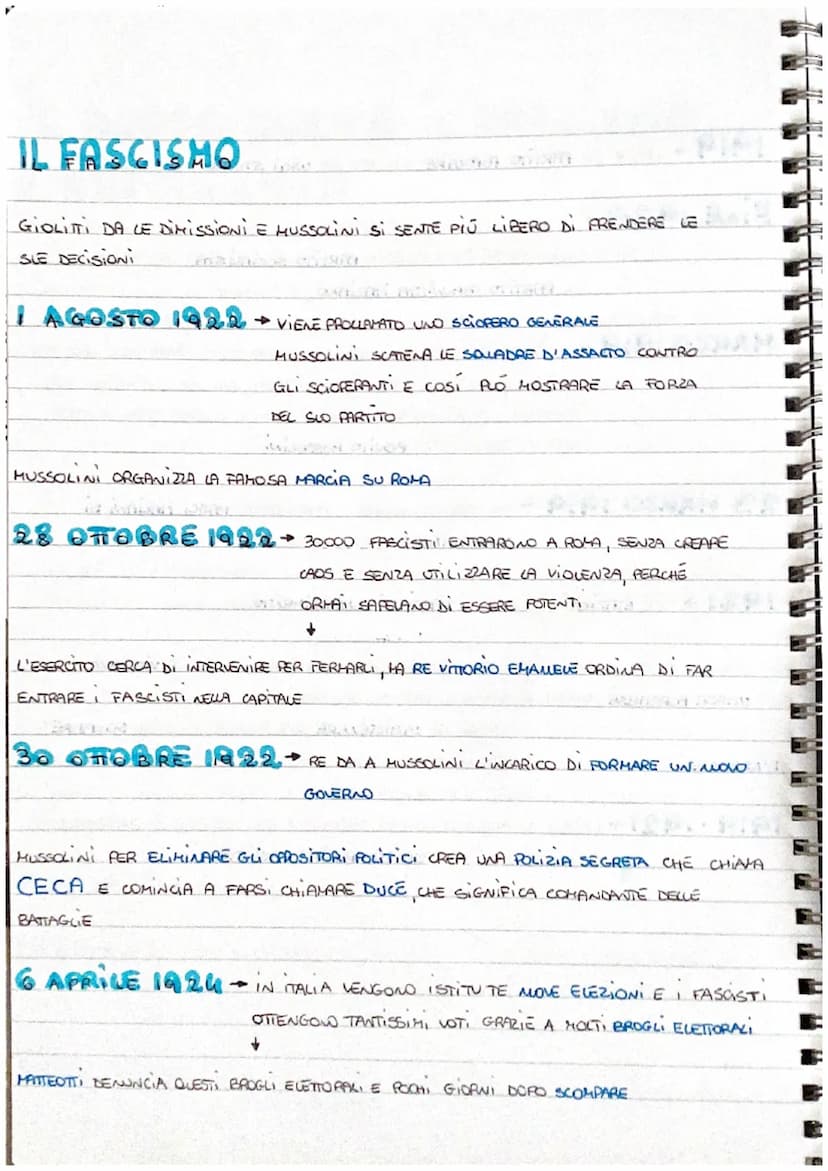 IL FASCISMO
GIOLITTI DA LE DIMISSIONI E MUSSOLINI SI SENTE PIÚ LIBERO DI PRENDERE LE
SUE DECISIONI
1 AGOSTO 1922 → VIENE PROCLAMATO UNO SCIOPERO GENERALE
MUSSOLINI SCATENA LE SQUADRE D'ASSALTO CONTRO
GLI SCIOPERANTI E COSÍ PUÓ MOSTRARE LA FORZA
DEL SUO PARTITO
MUSSOLINI ORGANIZZA LA FAMOSA MARCIA SU ROMA
28 OTTOBRE 1922 → 30000 FASCISTI ENTRARONO A ROMA, SENZA CREARE
CAOS E SENZA UTILIZZARE LA VIOLENZA, PERCHÉ
ORMAI SAPEVANO DI ESSERE POTENTI
↓
L'ESERCITO CERCA DI INTERVENIRE PER FERMARLI, MA RE VITTORIO EMANUELE ORDINA DI FAR
ENTRARE I FASCISTI NELLA CAPITALE
30 OTTOBRE 1922 → RE DA A MUSSOLINI L'INCARICO DI FORMARE UN NUOVO
GOVERNO
MUSSOLINI PER ELIMINARE GLI OPPOSITORI POLITICI CREA UNA POLIZIA SEGRETA CHE CHIAMA
CECA E COMINCIA A FARSI CHIAMARE DUCE, CHE SIGNIFICA COMANDANTE DELLE
BATTAGLIE
6 APRILE 1924 → IN ITALIA VENGONO ISTITUTE NUOVE ELEZIONI E I FASCISTI
OTTENGONO TANTISSIMI VOTI GRAZIE A MOLTI BROGLI ELETTORALI
↓
MATTEOTTI DENUNCIA QUESTI BROGLI ELETTORALI E POCHI GIORNI DOPO SCOMPARE